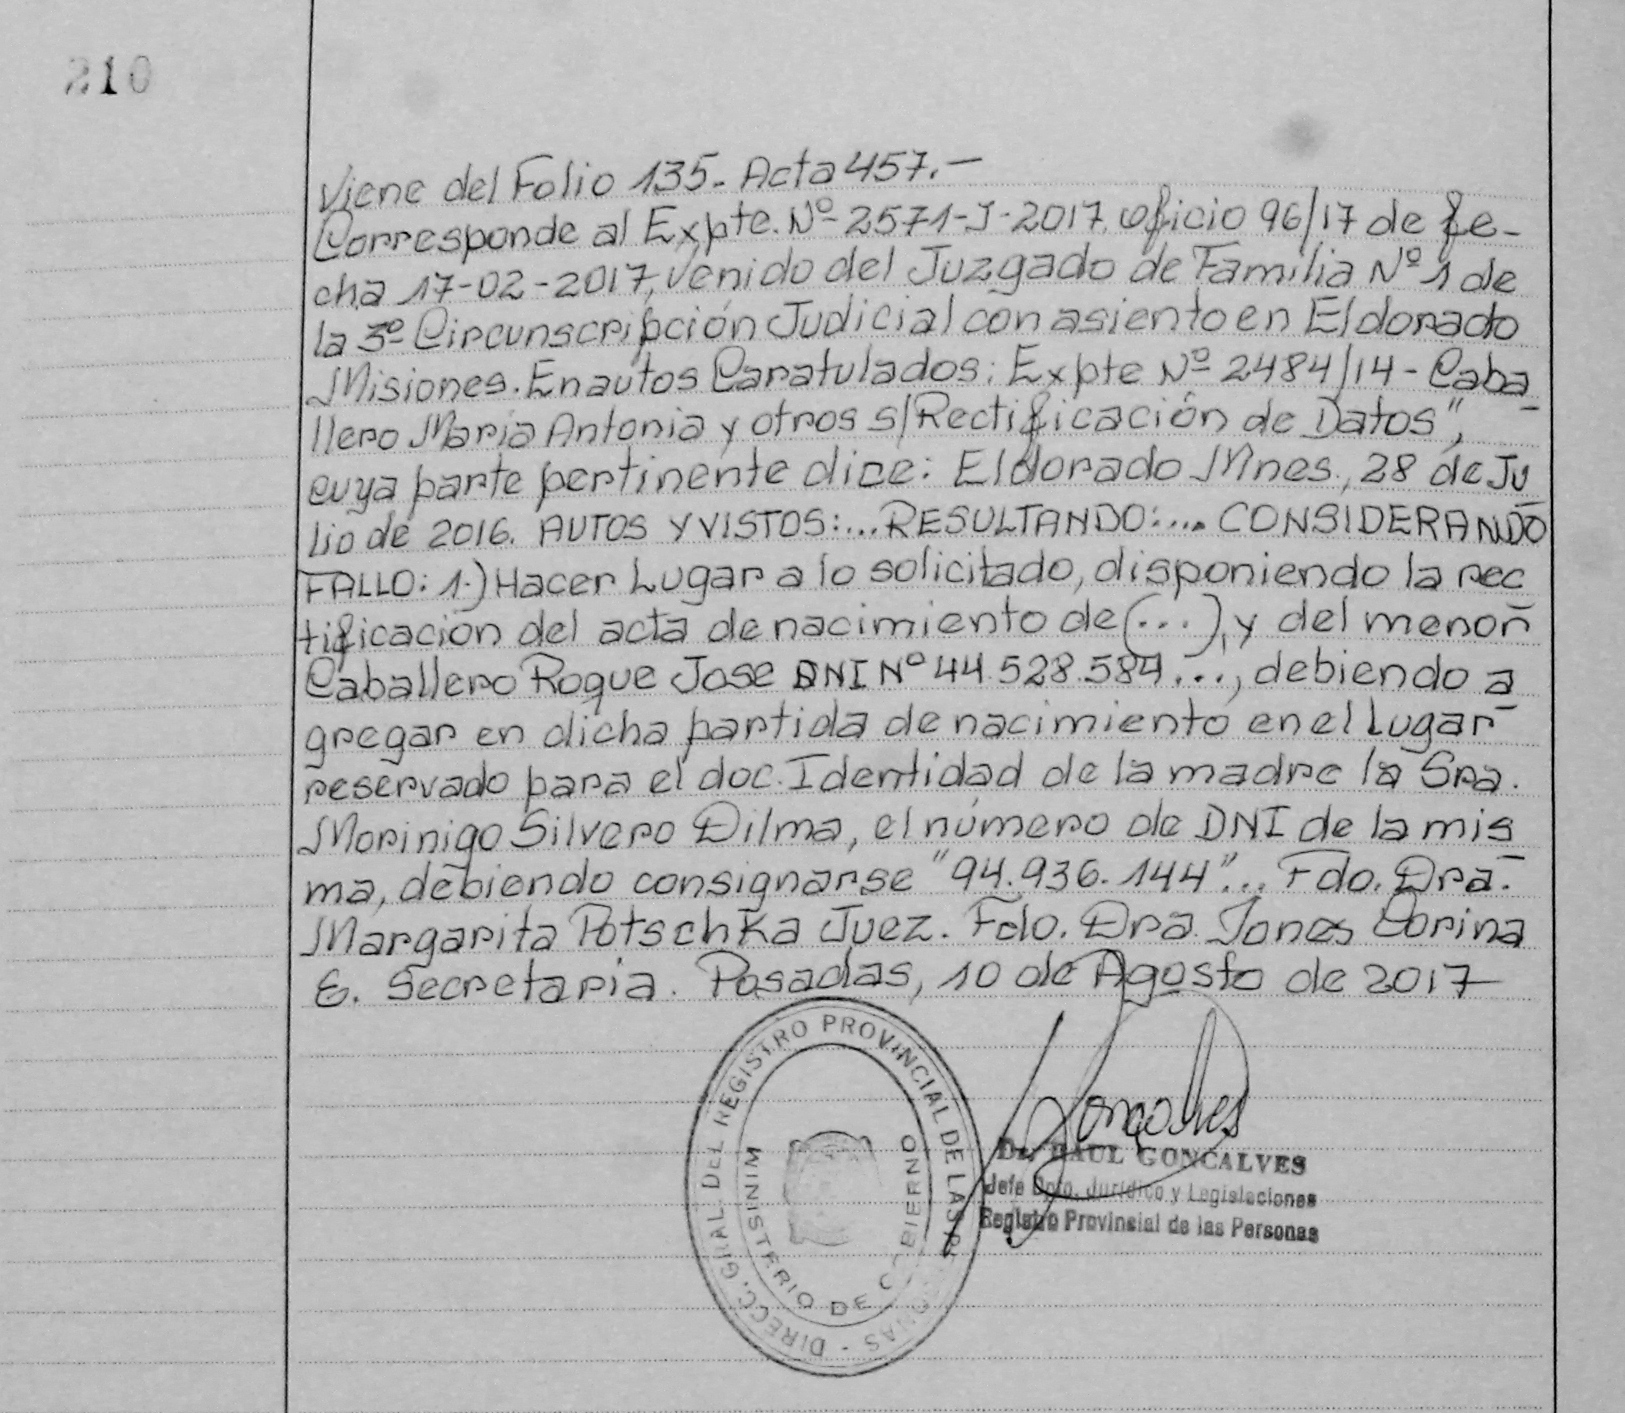 210
Viene del Folio 135. Acta 457.—
Corresponde al Expte. Nº 2571-J-2017, oficio 96/17 de fe-
cha 17-02-2017, venido del Juzgado de Familia Nº 1 de
la 3º Circunscripción Judicial con asiento en Eldorado
Misiones. En autos Caratulados: Expte Nº 2484/14 - Caba-
llero Maria Antonia y otros s/Rectificación de Datos",
cuya parte pertinente dice: Eldorado Mnes., 28 de Ju-
lio de 2016. AUTOS Y VISTOS:...RESULTANDO:.... CONSIDERANDO
FALLO: 1.) Hacer Lugar a lo solicitado, disponiendo la rec-
tificación del acta de nacimiento de (...), y del menor
Caballero Roque Jose DNI Nº 44.528.584..., debiendo a-
gregar en dicha partida de nacimiento en el Lugar
reservado para el doc. Identidad de la madre la Sra.
Morinigo Silvero Dilma, el número de DNI de la mis-
ma, debiendo consignarse "94.936.144"... Fdo. Dra.
Margarita Potschka Juez. Fdo. Dra. Jones Corina
E. Secretaria. Posadas, 10 de Agosto de 2017
DIRECC. GRAL. DEL REGISTRO PROVINCIAL DE LAS PERSONAS -
MINISTERIO DE GOBIERNO
Goncalves
Dr. RAUL GONCALVES
Jefe Dpto. Jurídico y Legislaciones
Registro Provincial de las Personas